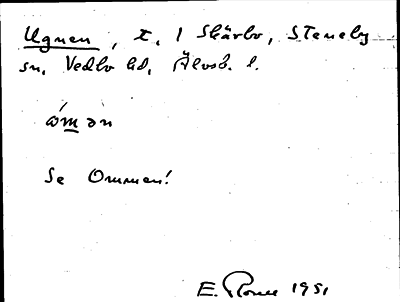 Ugnen, t. 1 Skärbo, Steneby
sn, Vedbo hd, Älvsb. l.
óm̲ən
Se Ommen!
E. 1951